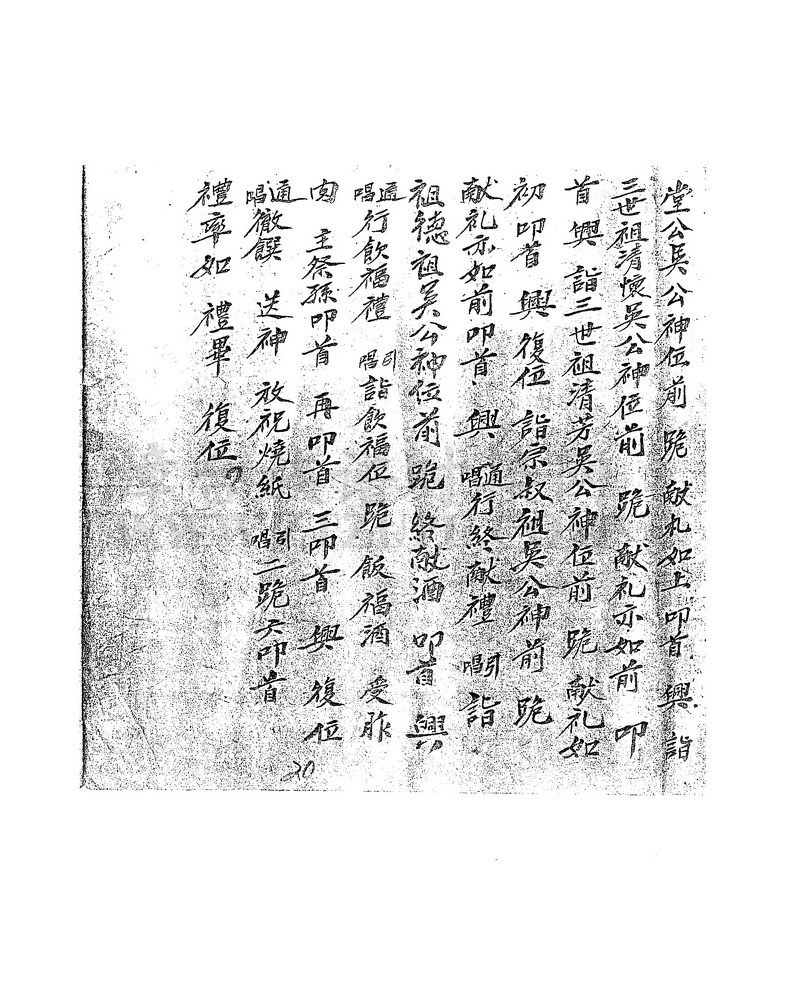 堂公吳公神位前 跪 献礼如上 叩首 興 詣
三世祖清懷吳公神位前 跪 献礼亦如前 叩
首 興 詣三世祖清芳吳公神位前 跪 献礼如
初 叩首 興 復位 詣宗叔祖吳公神前 跪
献礼亦如前 叩首 興 通唱行終献禮 引唱 詣
祖德祖吳公神位前 跪 終献酒 叩首 興
通唱行飲福禮 引唱詣飲福位 跪 飯福酒 受胙
肉 主祭孫叩首 再叩首 三叩首 興 復位
通唱徹饌 送神 放祝燒紙 引唱二跪六叩首
禮率如 禮畢 復位
20